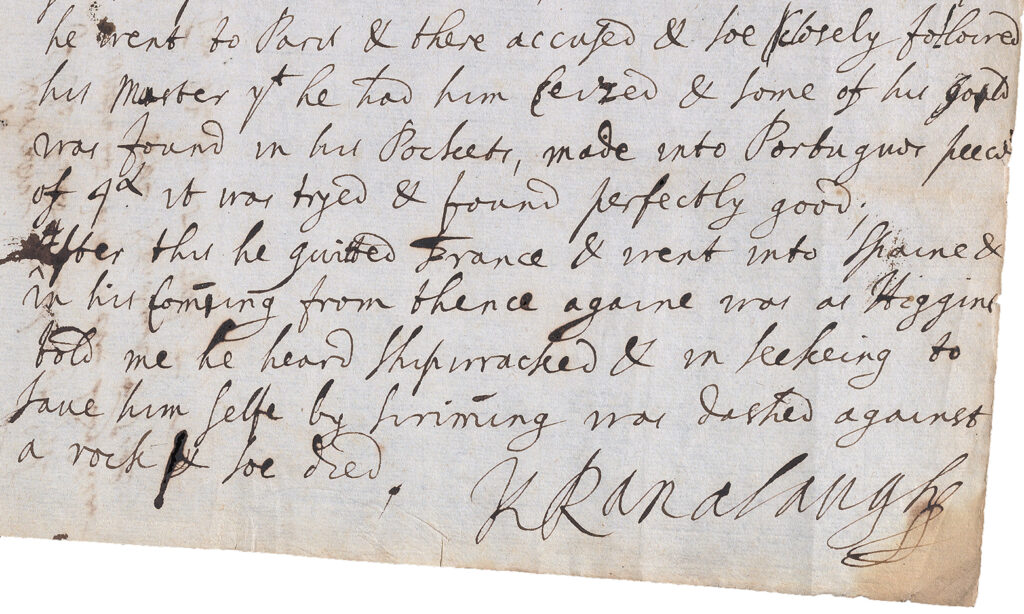 he went to Paris & there accused & soe closely followed
his Master yt he had him seized & some of his gould
was found in his Pockets, made into Portugues peeces
of 4d it was tryed & found perfectly good;
After this he quitted France & went into Spaine &
in his Comeing from thence againe was as Higgins
told me he heard Shipwracked & in seekeing to
save him selfe by swiming was dashed against
a rock & soe died.
R Ranalaugh